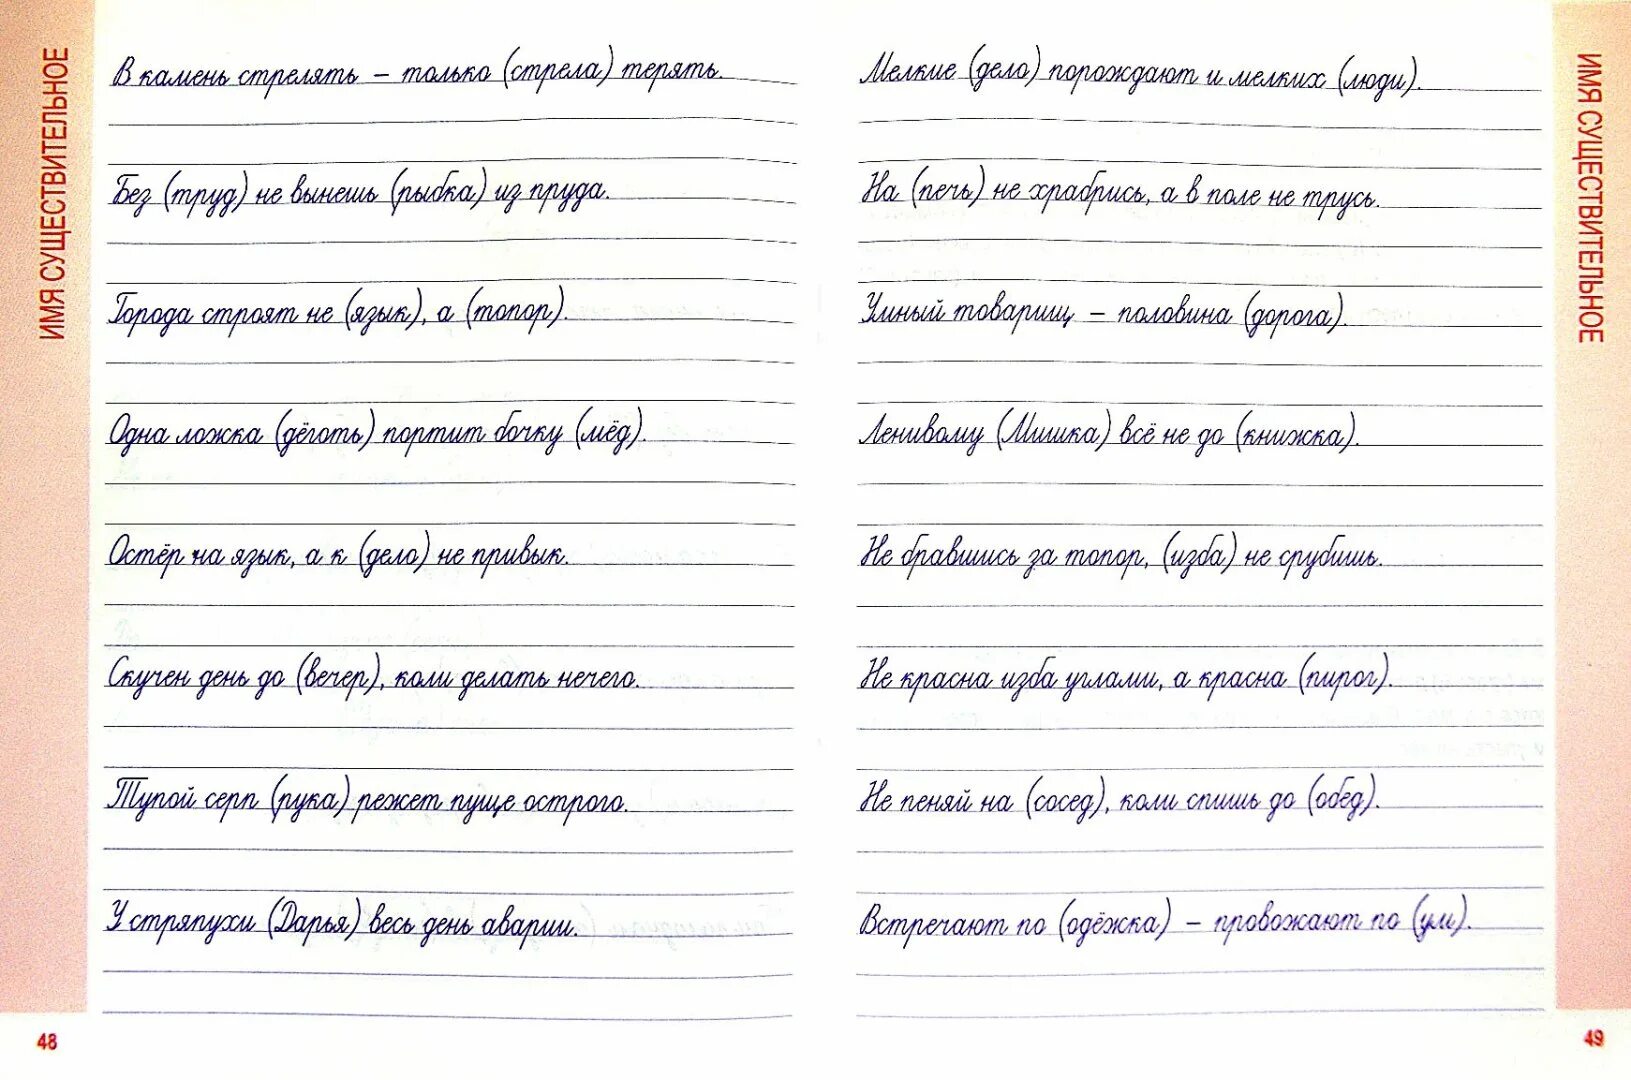 ИМЯ СУЩЕСТВИТЕЛЬНОЕ
В камень стрелять – только (стрела) терять.
Без (труд) не вынешь (рыбка) из пруда.
Города строят не (язык), а (топор).
Одна ложка (дёготь) портит бочку (мёд).
Остёр на язык, а к (дело) не привык.
Скучен день до (вечер), коли делать нечего.
Тупой серп (рука) режет пуще острого.
У стряпухи (Дарья) весь день аварии.
48
Мелкие (дело) порождают и мелких (люди).
На (печь) не храбрись, а в поле не трусь.
Умный товарищ – половина (дорога).
Ленивому (Мишка) всё не до (книжка).
Не бравшись за топор, (изба) не срубишь.
Не красна изба углами, а красна (пирог).
Не пеняй на (сосед), коли спишь до (обед).
Встречают по (одёжка) – провожают по (ум).
ИМЯ СУЩЕСТВИТЕЛЬНОЕ
49